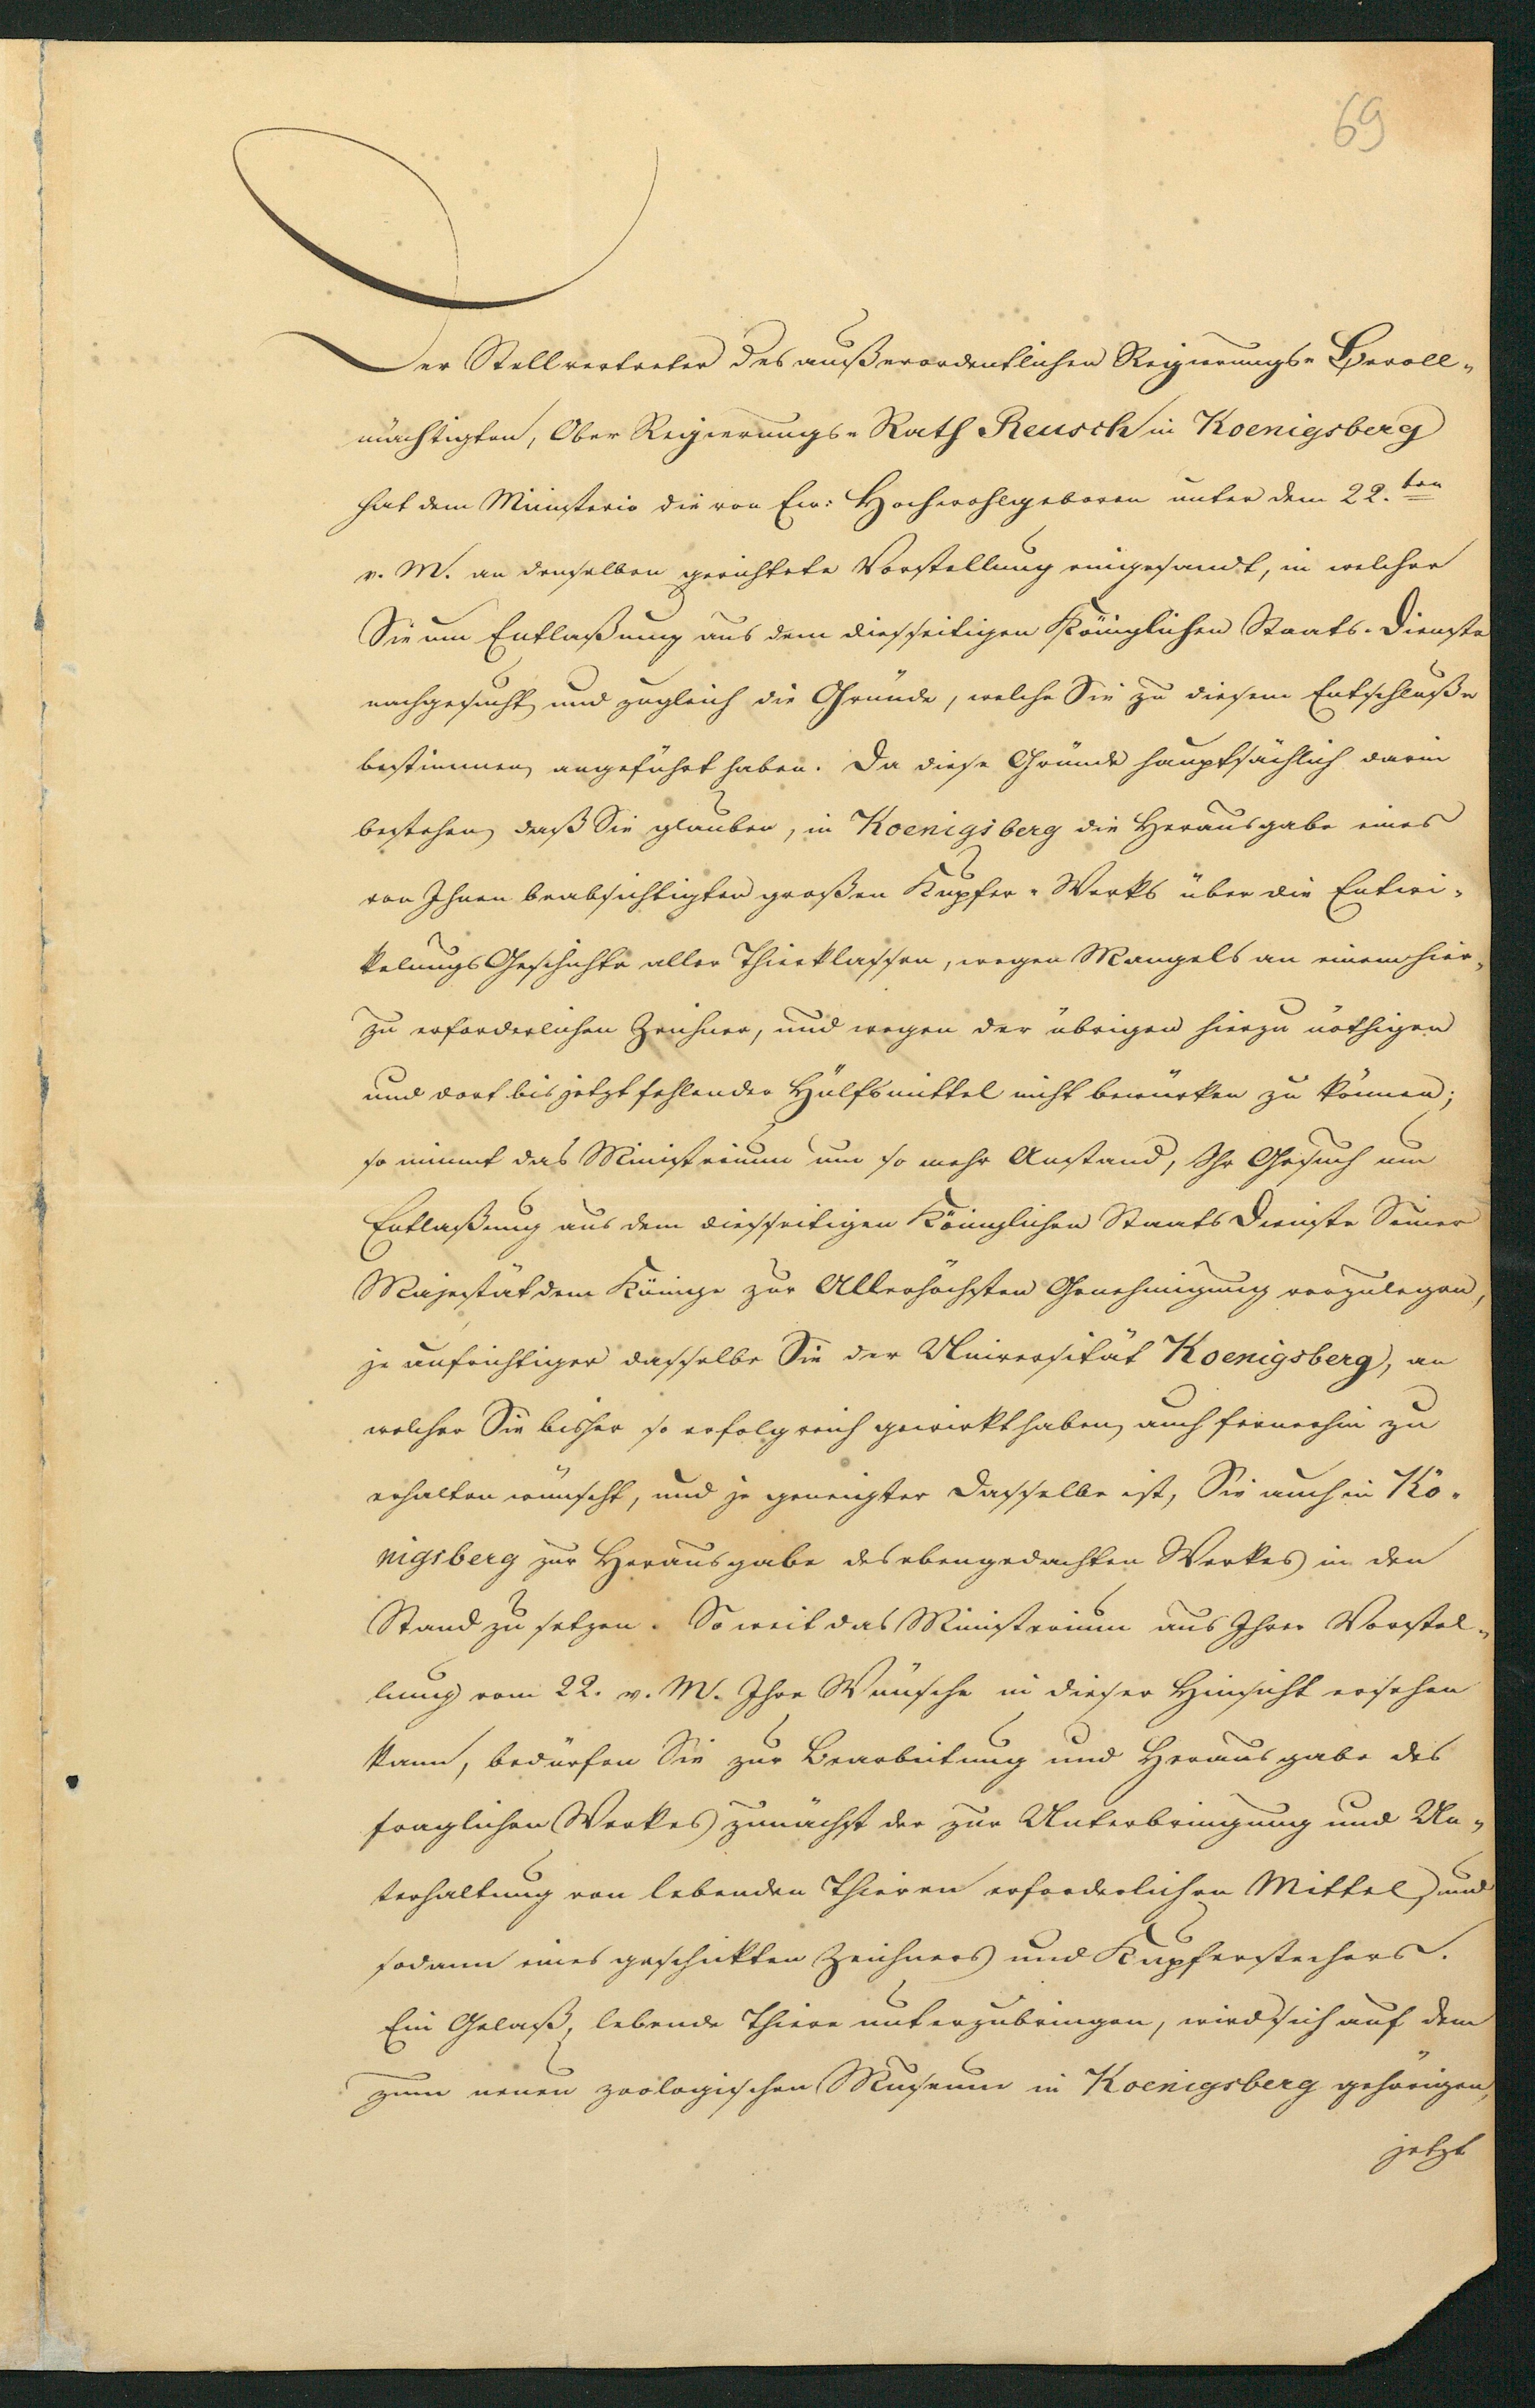 69
Der Stellvertreter des außerordentlichen Regierungs-Bevoll-
mächtigten, Ober Regierungs-Rath Reusch in Koenigsberg
hat dem Ministerio die von Ew: Hochwohlgeboren unter dem 22.ten
v. M. an denselben gerichtete Vorstellung eingesandt, in welcher
Sie um Entlaßung aus dem diesseitigen Königlichen Staats-Dienste
nachgesucht und zugleich die Gründe, welche Sie zu diesem Entschluße
bestimmen, angeführt haben. Da diese Gründe hauptsächlich darin
bestehen, daß Sie glauben, in Koenigsberg die Herausgabe eines
von Ihnen beabsichtigten großen Kupfer-Werks über die Entwi-
kelungsGeschichte aller Thierklassen, wegen Mangels an einem hier-
zu erforderlichen Zeichner, und wegen der übrigen hierzu nöthigen
und dort bis jetzt fehlenden Hülfsmittel nicht bewürken zu können;
so nimmt das Ministerium um so mehr Anstand, Ihr Gesuch um
Entlaßung aus dem diesseitigen Königlichen Staats Dienste Seiner
Majestät dem Könige zur Allerhöchsten Genehmigung vorzulegen,
je aufrichtiger dasselbe Sie der Universität Koenigsberg, an
welcher Sie bisher so erfolgreich gewirkt haben, auch fernerhin zu
erhalten wünscht, und je geneigter Dasselbe ist, Sie auch in Kö-
nigsberg zur Herausgabe des ebengedachten Werkes in den
Stand zu setzen. So weit das Ministerium aus Ihrer Vorstel-
lung vom 22. v. M. Ihre Wünsche in dieser Hinsicht ersehen
kann, bedürfen Sie zur Bearbeitung und Herausgabe des
fraglichen Werkes zunächst der zur Unterbringung und Un-
terhaltung von lebenden Thieren erforderlichen Mittel, und
sodann eines geschickten Zeichners und Kupferstechers.
Ein Gelaß, lebende Thiere unterzubringen, wird sich auf dem
zum neuen zoologischen Museum in Koenigsberg gehörigen,
jetzt